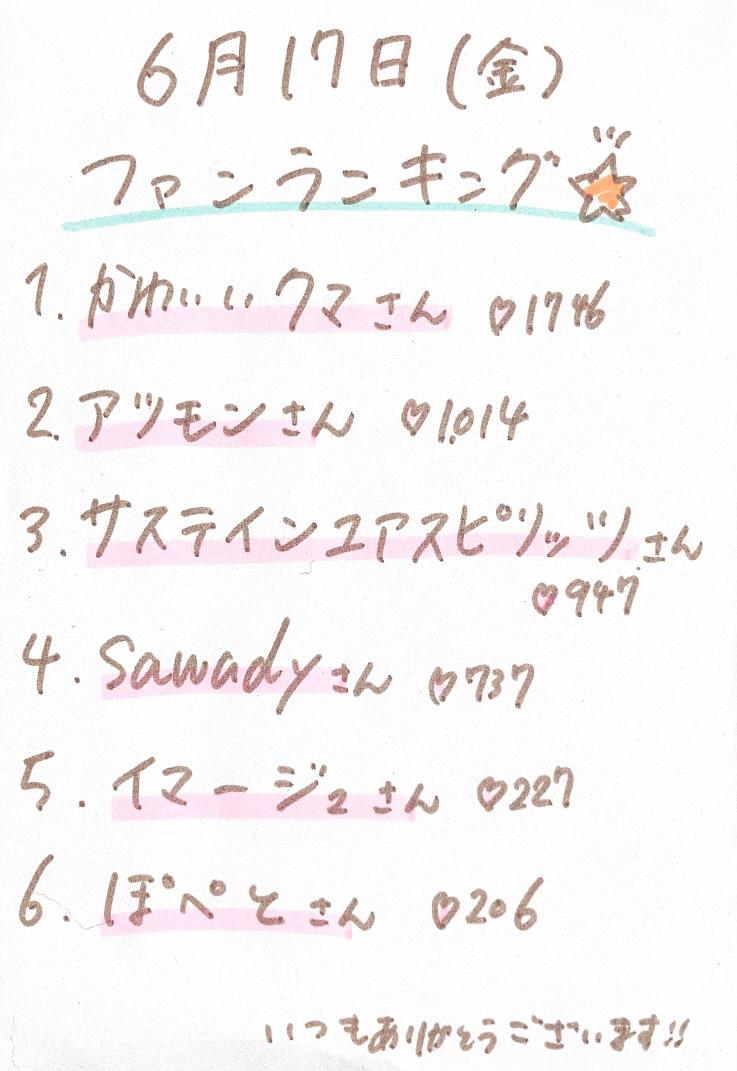 6月17日(金)
ファンランキング☆
1. かわいいクマさん ♡1746
2. アツモンさん ♡1,014
3. サステインユアスピリッツさん
♡947
4. sawadyさん ♡737
5. イマージュさん ♡227
6. ぽぺとさん ♡206
いつもありがとうございます!!